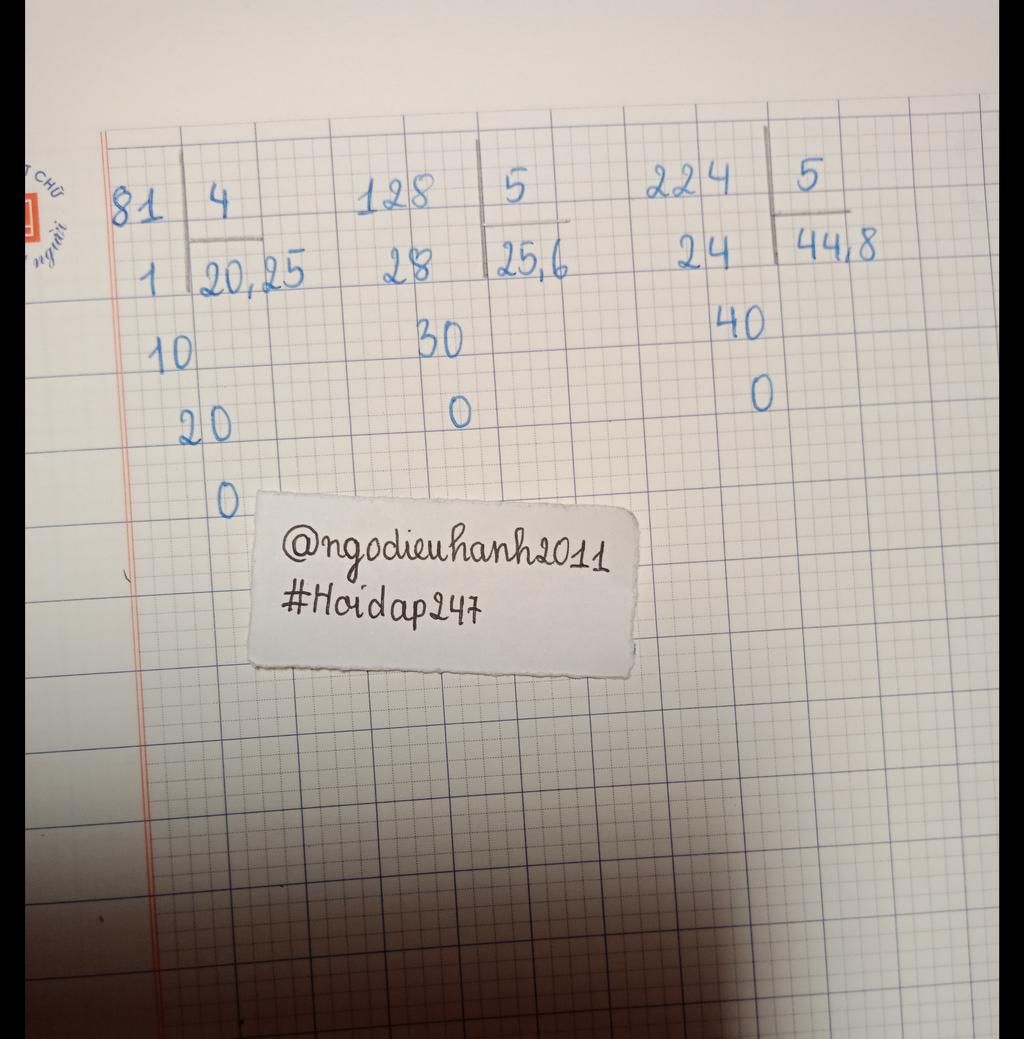 CHỮ
người
81 4
1 20,25
10
20
0
128 5
28 25,6
30
0
224 5
24 44,8
40
0
@ngodieuhanh2011
#Hoidap247